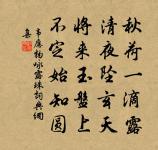 秋荷一滴露
清夜坠玄天
将来玉盘上
不定始知圆
韦应物咏露珠词典网
集